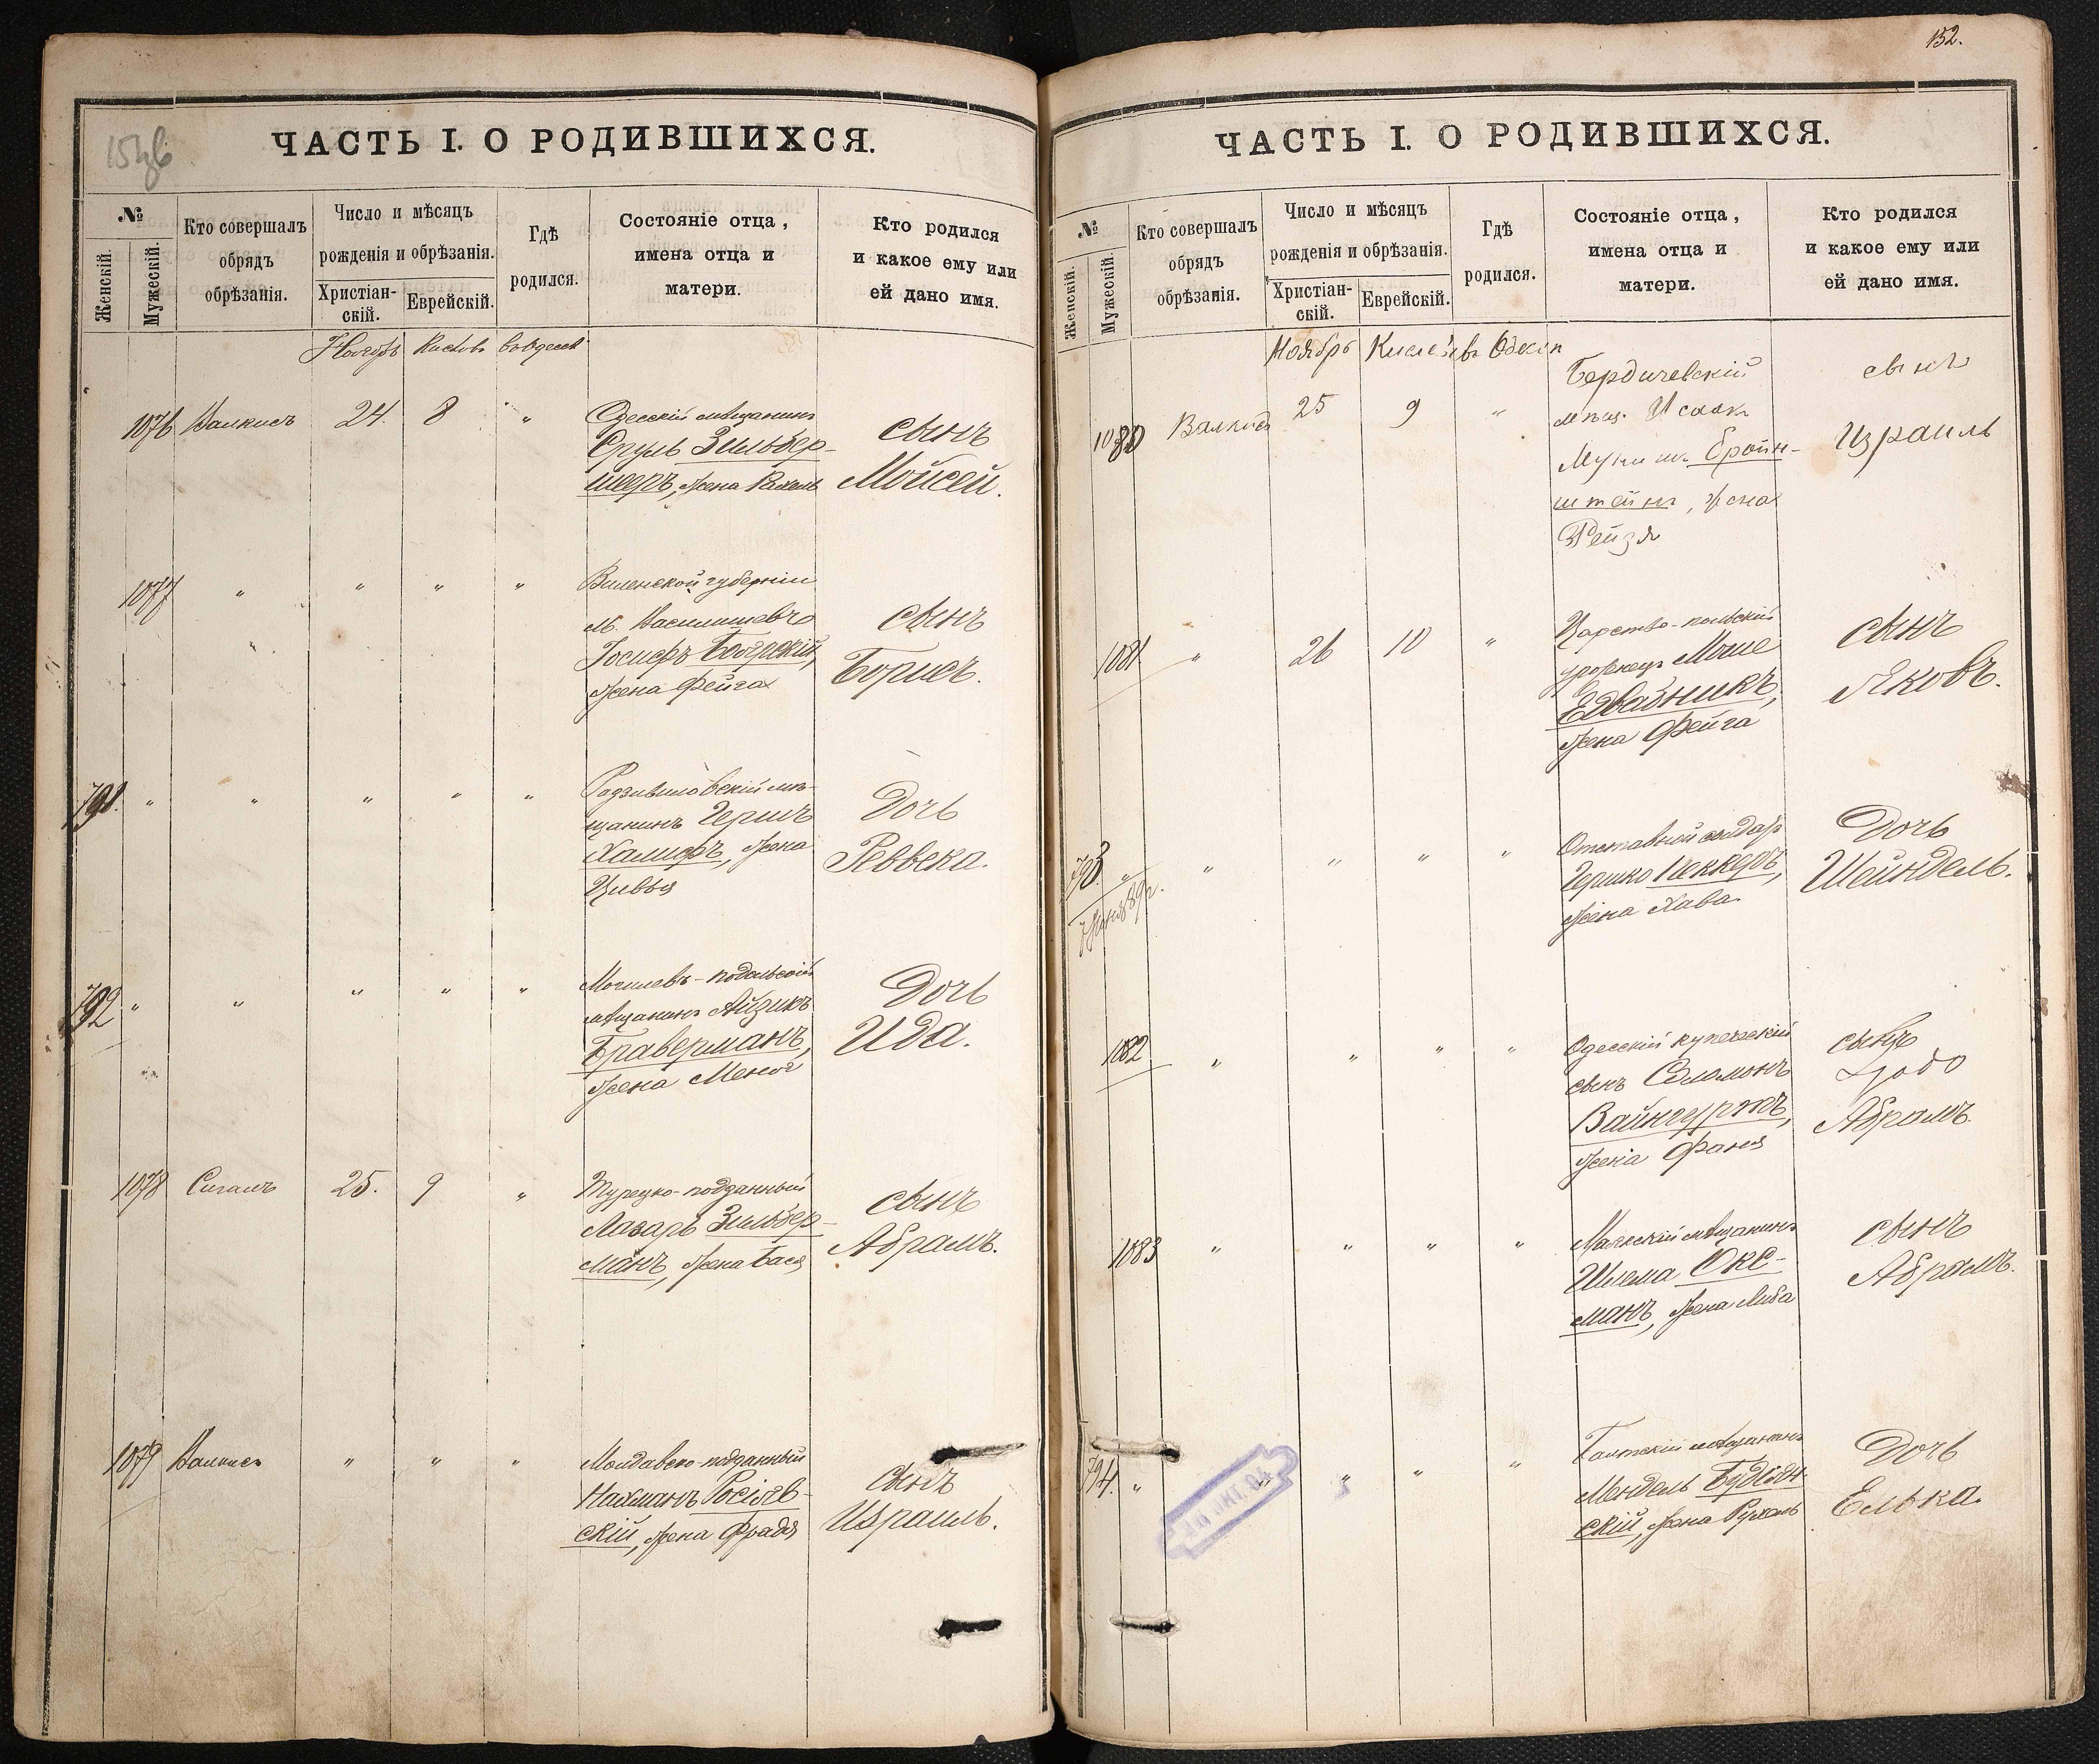 ЧАСТЬ I. О РОДИВШИХСЯ.
№
Женскій.
Мужескій.
Кто совершалъ
обрядъ
обрѣзанія.
Число и мѣсяцъ
рожденія и обрѣзанія.
Христіан-
скій.
Еврейскій.
Гдѣ
родился.
Состояніе отца,
имена отца и
матери.
Кто родился
и какое ему или
ей дано имя.
Ноябрь въ Одессѣ
1076 Валкисъ 24. 8 " Одесскій мѣщанинъ
Сруль Зильбер-
шеръ, жена Рахель
сынъ
Мойсей.
1077 " " " " Виленской губерніи
м. Василишевъ
Іосифъ Боярскій,
жена Фейга
сынъ
Борисъ.
791. " " " " " " Радзивиловскій мѣ-
щанинъ Гершъ
Халифъ, жена
Цивья
Дочь
Реввека.
792 " " " " " Могилевъ-подольскій
мѣщанинъ Айзикъ
Браверманъ,
жена
Дочь
Ида.
1078 Сигалъ 25. 9 " Турецко-подданный
Лазарь Зильбер-
манъ, жена Бася
сынъ
Абрамъ.
1079 Валкисъ " " " Молдавско-подданный
Нахманъ
скій, жена Фрадя
сынъ
Израиль.
152.
ЧАСТЬ I. О РОДИВШИХСЯ.
№
Женскій.
Мужескій.
Кто совершалъ
обрядъ
обрѣзанія.
Число и мѣсяцъ
рожденія и обрѣзанія.
Христіан-
скій.
Еврейскій.
Гдѣ
родился.
Состояніе отца,
имена отца и
матери.
Кто родился
и какое ему или
ей дано имя.
Ноябрь Кислевъ въ Одессѣ
1080 Валкисъ 25 9 " Бердичевскій
мѣщ. Исаакъ
Бройн-
штейнъ, жена
Рейзя
сынъ
Израиль
1081 " 26 10 " Царство-польскій
уроженецъ Моше
Едвабникъ,
жена Фейга
сынъ
Яковъ.
793. " " " " " " Отставной солдатъ
Гершко Пеккеръ,
жена Хава
Дочь
Шейндель.
1082 " " " " Одесскій купеческій
сынъ Соломонъ
Вайнгуртъ,
жена Фаня
сынъ
Абрамъ.
1083 " " " " Маякскій мѣщанинъ
Шлема Окс-
манъ, жена Либа
сынъ
Абрамъ.
794. " " " " " Балтскій мѣщанинъ
Мендель
скій, жена Рухель
Дочь
Елька.